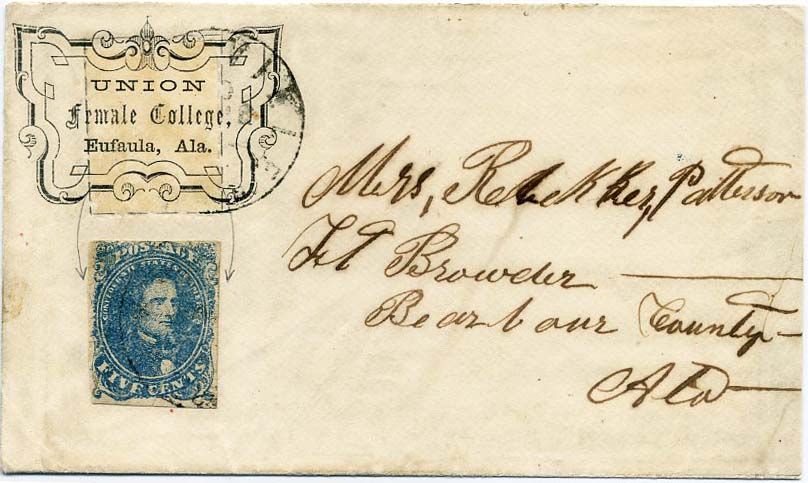 UNION
Female College,
Eufaula, Ala.
POSTAGE
CONFEDERATE STATES OF AMERICA
FIVE CENTS
Mrs, Rebekker Patterson
Ft Browder
Bearbour County
Ala